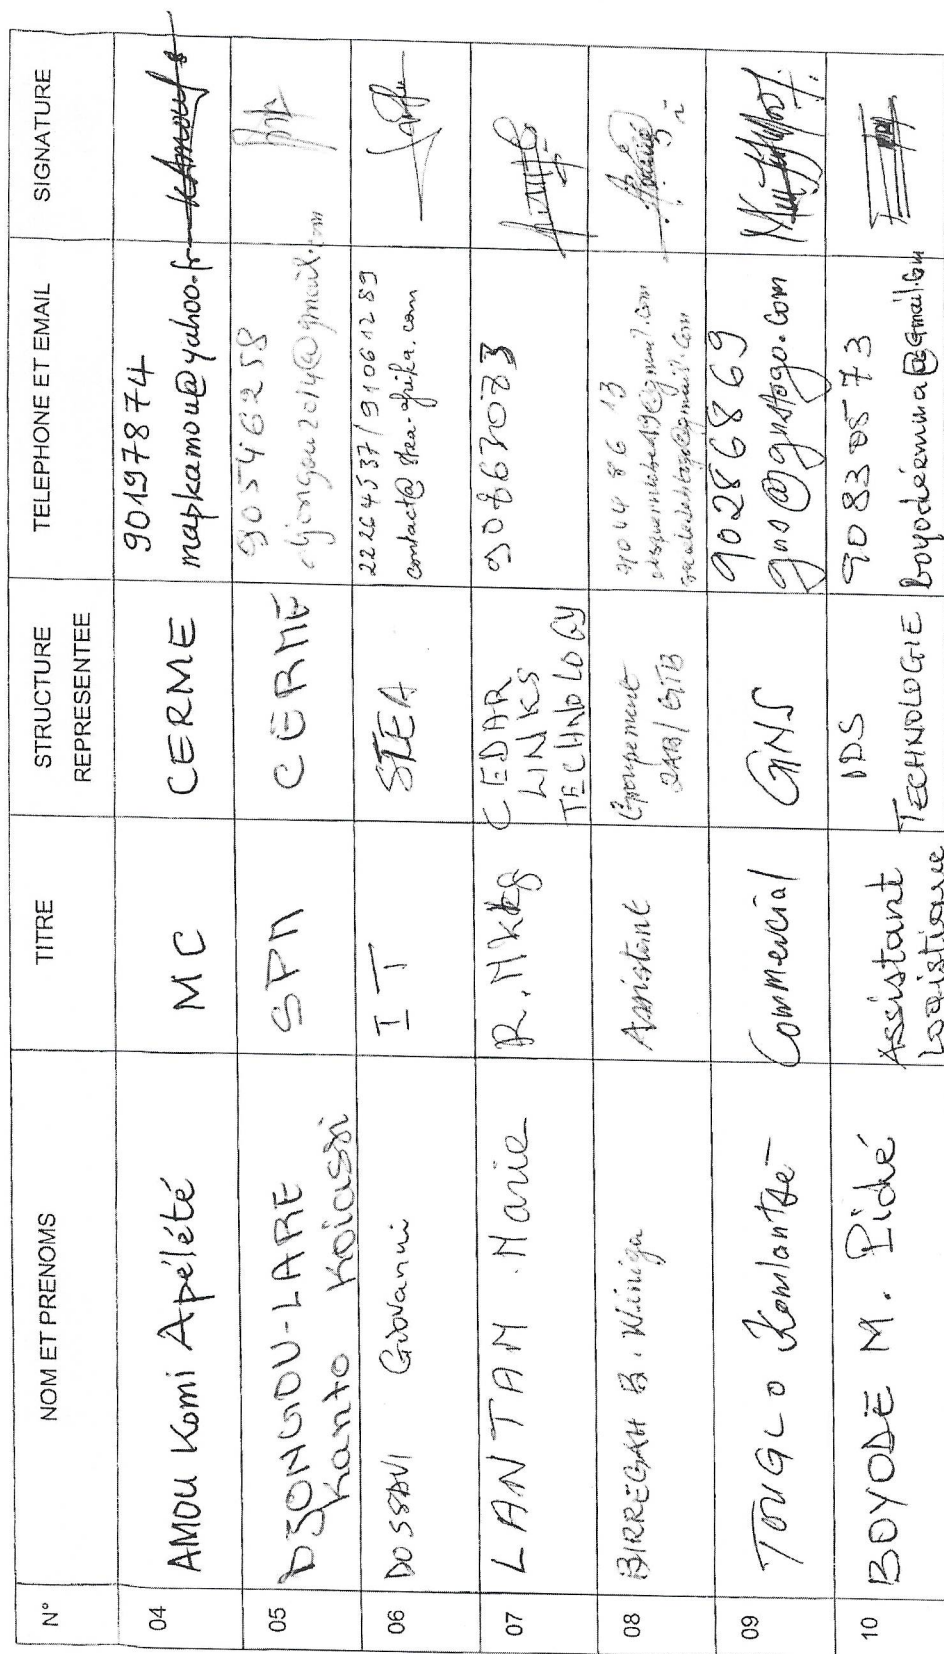 N° NOM ET PRENOMS TITRE STRUCTURE REPRESENTEE TELEPHONE ET EMAIL SIGNATURE
04 AMOU Komi Apélété MC CERME 90197874
mapkamou@yahoo.fr KAmou
05 DJONGOU-LARE SPM CERME 90546258
Kanto Koicassi djongou2014@gmail.com
06 DOSSAVI Giovanni IT STEA 22264537/91061289
contact@stea-afrika.com
07 LANTAM Marie R. Mktg CEDAR
LINKS
TECHNOLOGY 90863083
08 BIRREGAH B. Winiga Assistant Groupement
2AB/GTB 90 44 86 13
09 TOUGLO Komlantsè Commercial GNS 90286869
gns@gnstogo.com
10 BOYODE M. Pidié Assistant
Logistique IDS
TECHNOLOGIE 90830573
boyodeemma@gmail.com